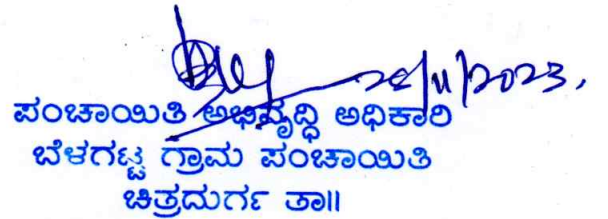 ಪಂಚಾಯಿತಿ ಅಭಿವೃದ್ಧಿ ಅಧಿಕಾರಿ
ಬೆಳಗಟ್ಟ ಗ್ರಾಮ ಪಂಚಾಯಿತಿ
ಚಿತ್ರದುರ್ಗ ತಾ॥